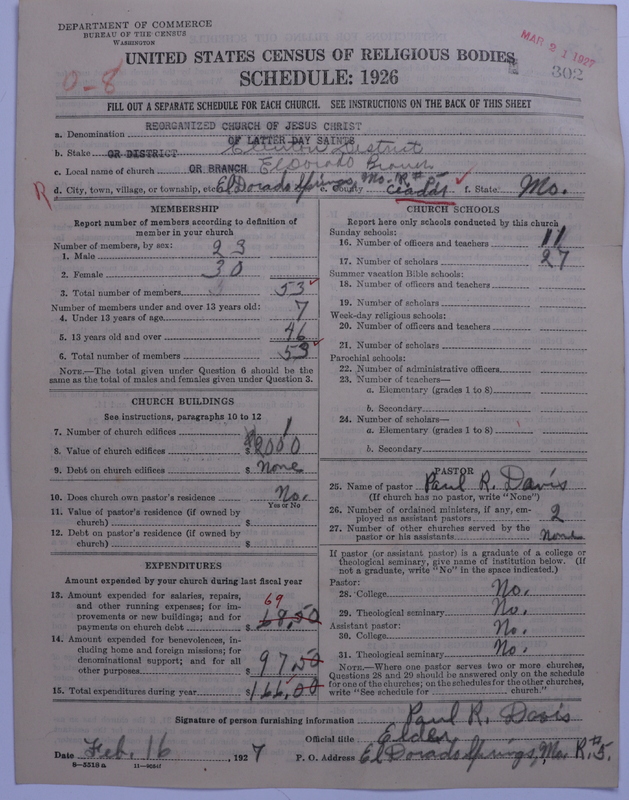 DEPARTMENT OF COMMERCE
BUREAU OF THE CENSUS
WASHINGTON
MAR 21 1927
UNITED STATES CENSUS OF RELIGIOUS BODIES
302
0-8
SCHEDULE: 1926
FILL OUT A SEPARATE SCHEDULE FOR EACH CHURCH. SEE INSTRUCTIONS ON THE BACK OF THIS SHEET
REORGANIZED CHURCH OF JESUS CHRIST
a. Denomination
OF LATTER DAY SAINTS
b. Stake OR DISTRICT Clinton District
c. Local name of church OR BRANCH El Dorado Branch
R d. City, town, village, or township, etc. El Dorado Springs, Mo. R #5 e. County Ceadar f. State Mo.
MEMBERSHIP
Report number of members according to definition of
member in your church
Number of members, by sex:
1. Male 23
2. Female 30
3. Total number of members 53
Number of members under and over 13 years old:
4. Under 13 years of age 7
5. 13 years old and over 46
6. Total number of members 53
NOTE.—The total given under Question 6 should be
same as the total of males and females given under Question 3.
CHURCH BUILDINGS
See instructions, paragraphs 10 to 12
7. Number of church edifices 1
8. Value of church edifices $2000
9. Debt on church edifices $ None
10. Does church own pastor's residence No.
Yes or No
11. Value of pastor's residence (if owned by
church) $
12. Debt on pastor's residence (if owned by
church) $
EXPENDITURES
Amount expended by your church during last fiscal year
13. Amount expended for salaries, repairs,
and other running expenses; for im-
provements or new buildings; and for
payments on church debt $ 69 68,50
14. Amount expended for benevolences, in-
cluding home and foreign missions; for
denominational support; and for all
other purposes $ 97 50
15. Total expenditures during year $ 166,00
CHURCH SCHOOLS
Report here only schools conducted by this church
Sunday schools:
16. Number of officers and teachers 11
17. Number of scholars 27
Summer vacation Bible schools:
18. Number of officers and teachers
19. Number of scholars
Week-day religious schools:
20. Number of officers and teachers
21. Number of scholars
Parochial schools:
22. Number of administrative officers
23. Number of teachers—
a. Elementary (grades 1 to 8)
b. Secondary
24. Number of scholars—
a. Elementary (grades 1 to 8)
b. Secondary
PASTOR
25. Name of pastor Paul R. Davis
(If church has no pastor, write "None")
26. Number of ordained ministers, if any, em-
ployed as assistant pastors 2
27. Number of other churches served by the
pastor or his assistants None
If pastor (or assistant pastor) is a graduate of a college or
theological seminary, give name of institution below. (If
not a graduate, write "No" in the space indicated.)
Pastor:
28. College No.
29. Theological seminary No.
Assistant pastor:
30. College No.
31. Theological seminary No.
NOTE.—Where one pastor serves two or more churches,
Questions 28 and 29 should be answered only on the schedule
for one of the churches; on the schedules for the other churches,
write "See schedule for church."
Signature of person furnishing information Paul R. Davis
Official title Elder
Date Feb. 16, 1927 P. O. Address El Dorado Springs, Mo. R. #5.
8-5518a